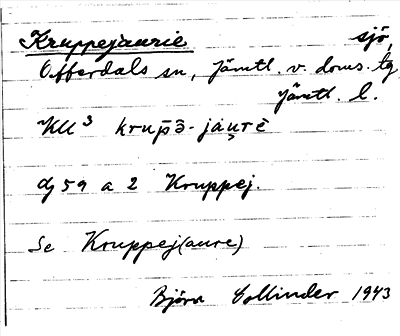 Kruppejaurie sjö,
Offerdals sn, Jämtl. v. doms. tg
Jämtl. l.
KU³ krup̄ə̄-jau̯rē
dj 59 a 2 Kruppej.
Se Kruppej(aure)
Björn Collinder 1943